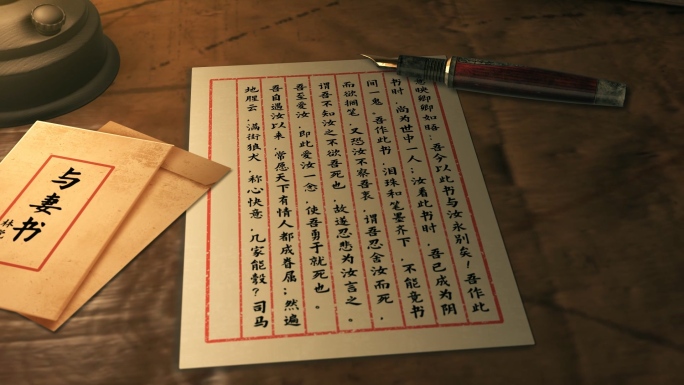 意映卿卿如晤：吾今以此书与汝永别矣！吾作此
书时，尚为世中一人；汝看此书时，吾已成为阴
间一鬼。吾作此书，泪珠和笔墨齐下，不能竟书
而欲搁笔，又恐汝不察吾衷，谓吾忍舍汝而死，
谓吾不知汝之不欲吾死也，故遂忍悲为汝言之。
吾至爱汝，即此爱汝一念，使吾勇于就死也。
吾自遇汝以来，常愿天下有情人都成眷属；然遍
地腥云，满街狼犬，称心快意，几家能彀？司马
与妻书
林觉